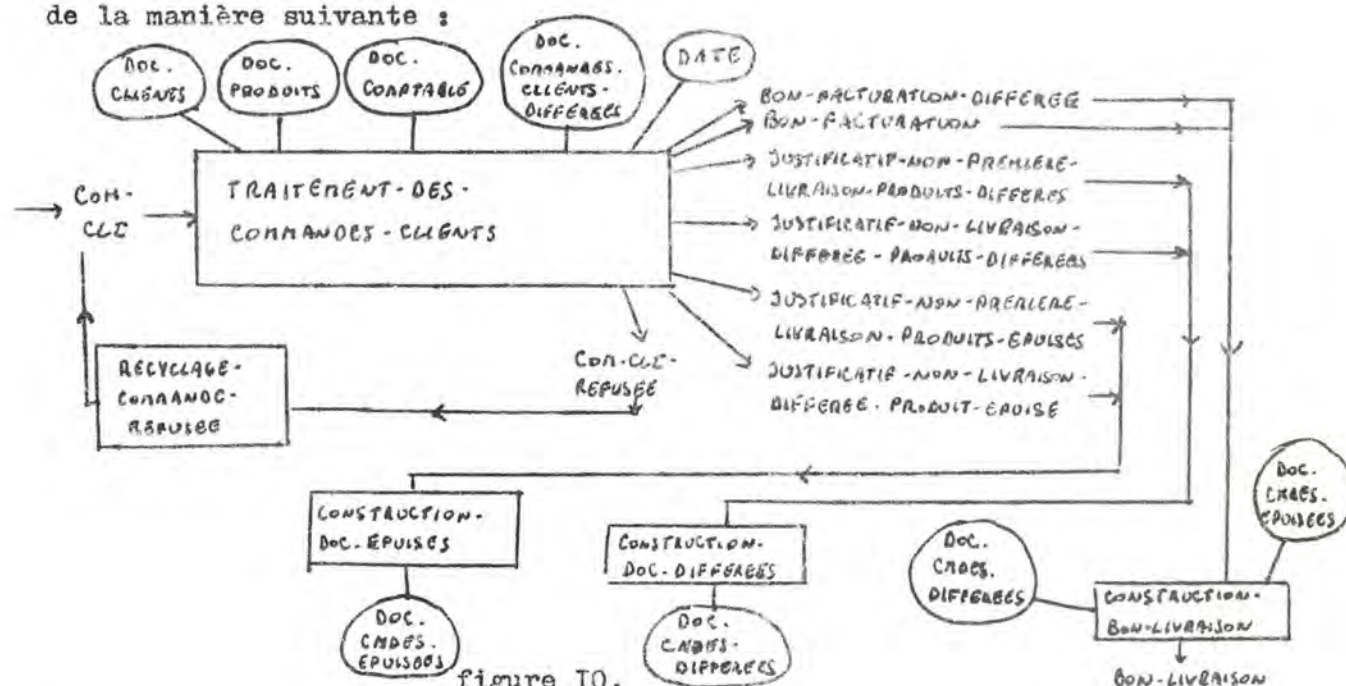 de la manière suivante :
DOC.
CLIENTS
DOC.
PRODUITS
DOC.
COMPTABLE
DOC.
COMMANDES.
CLIENTS-
DIFFEREES
DATE
COM-
CLI
TRAITEMENT-DES-
COMMANDES-CLIENTS
BON-FACTURATION-DIFFEREE
BON-FACTURATION
JUSTIFICATIF-NON-PREMIERE-
LIVRAISON-PRODUITS-DIFFERES
JUSTIFICATIF-NON-LIVRAISON-
DIFFEREE-PRODUITS-DIFFERES
JUSTIFICATIF-NON-PREMIERE-
LIVRAISON-PRODUITS-EPUISES
JUSTIFICATIF-NON-LIVRAISON-
DIFFEREE-PRODUIT-EPUISE
COM-CLI-
REFUSEE
RECYCLAGE-
COMMANDE-
REFUSEE
CONSTRUCTION-
DOC-EPUISES
DOC.
CMDES.
EPUISEES
CONSTRUCTION-
DOC-DIFFEREES
DOC.
CMDES-
DIFFEREES
DOC.
CMDES.
DIFFEREES
DOC.
CMDES.
EPUISEES
CONSTRUCTION-
BON-LIVRAISON
BON-LIVRAISON
figure IO.